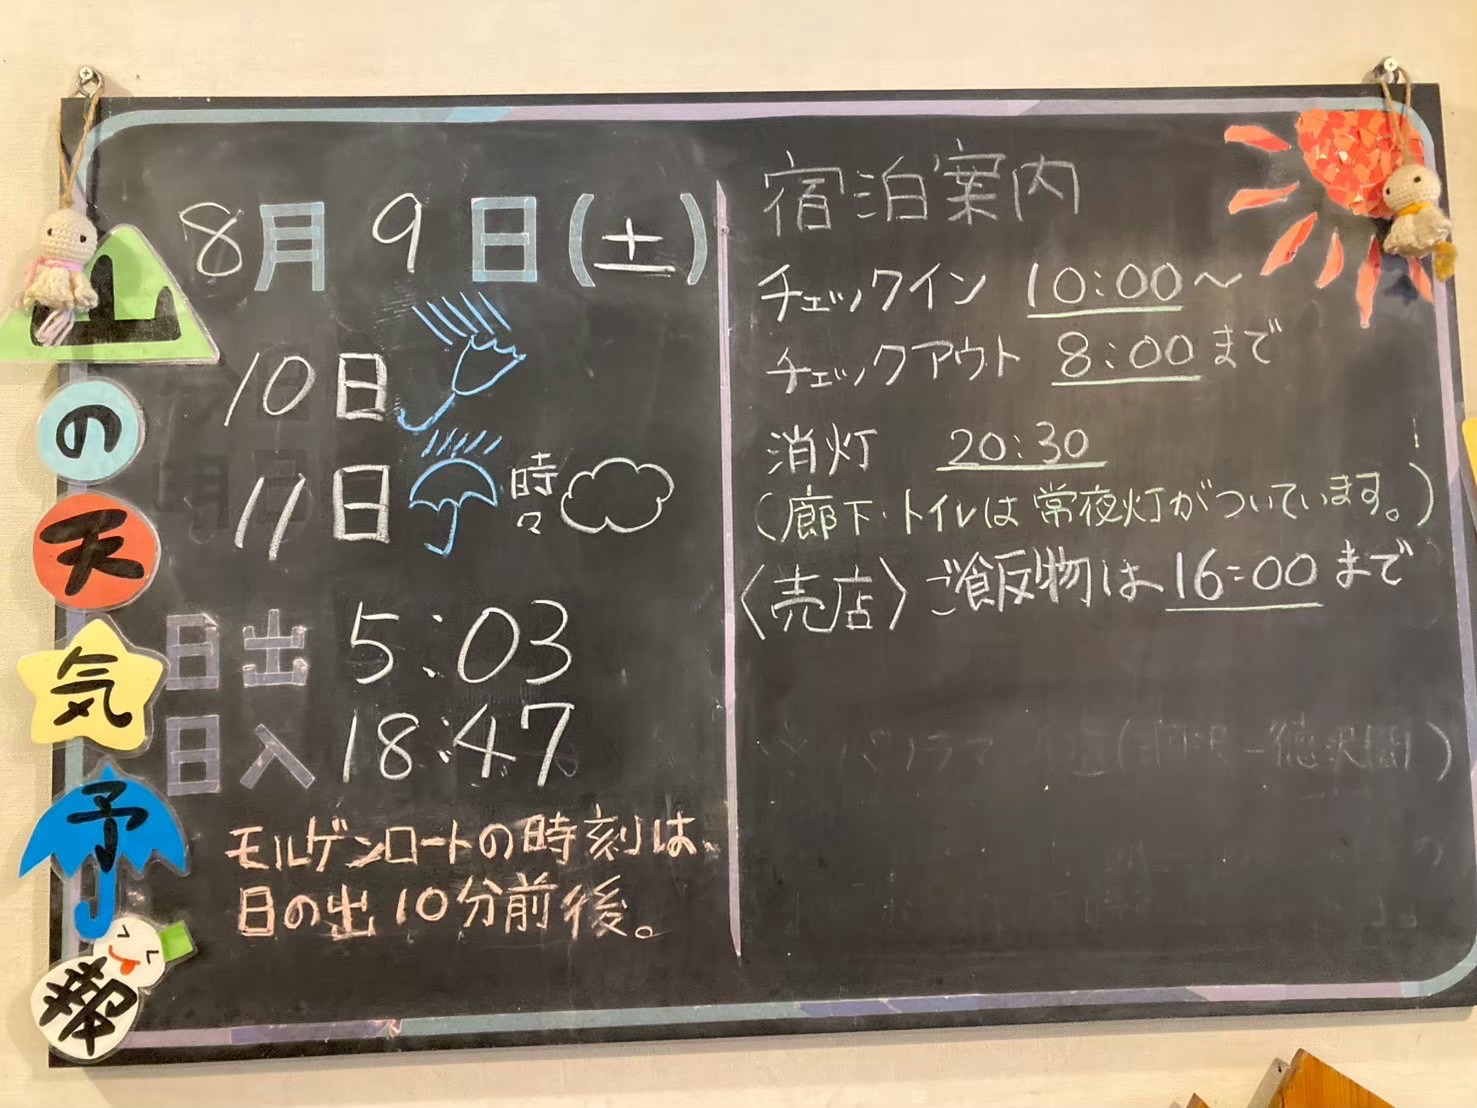 山の天気予報
8月9日(土)
10日
11日 時々
日出 5:03
日入 18:47
モルゲンロートの時刻は、
日の出10分前後。
宿泊案内
チェックイン 10:00～
チェックアウト 8:00まで
消灯 20:30
(廊下・トイレは常夜灯がついています。)
〈売店〉ご飯物は16:00まで